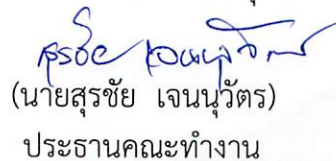 (นายสุรชัย เจนนุวัตร)
ประธานคณะทำงาน